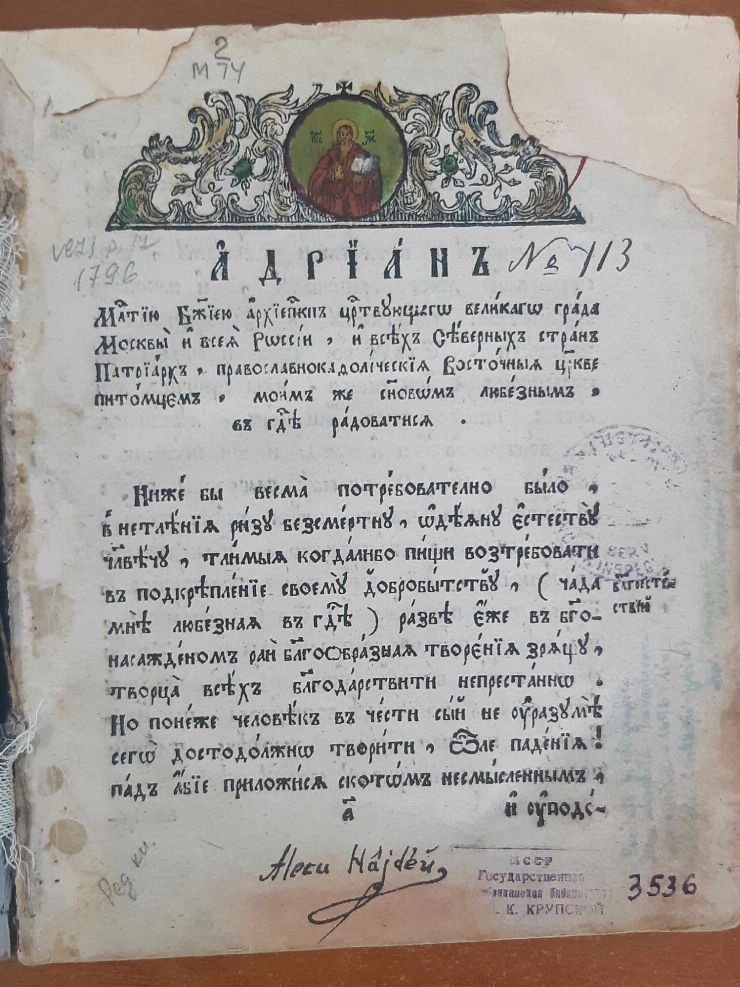 2
М 74
А҆ДРЇА́НЪ
№ 113
vezi p. 12
1796
Мл҃тїю Бж҃їею а҆рхїепⷭ҇кпъ црⷭ҇твующагѡ великагѡ гра́да
Москвы̀ и҆ всеѧ̀ Рѡссі́и, и҆ всѣ́хъ Сѣ́верныхъ стра́нъ
Патрїа́рхъ, правосла́внокаѳолі́ческїѧ Восто́чныѧ цр҃кве
пито́мцемъ, мои́мъ же сн҃овѡ́мъ любе́знымъ,
въ гдⷭ҇ѣ ра́доватисѧ.
Ниже́ бы весма̀ потре́бователно бы́ло,
в̾ нетлѣ́нїѧ ри́зу безсме́ртну, ѡ҆дѣ́ѧну є҆стествꙋ̀
чл҃вѣ́чу, тлѝмыѧ когда́либо пи́щи возтре́бовати
въ подкрѣпле́нїе своемꙋ̀ доброби́тству, (ча́да
мнѣ̀ любе́знаѧ въ гдⷭ҇ѣ) ра́звѣ є҆́же въ бг҃о-
насажде́номъ раѝ бл҃гоѻбра́знаѧ творе́нїѧ зрѧ́щу,
творца̀ всѣ́хъ бл҃года́рствити непреста́ннѡ.
Но поне́же человѣ́къ въ че́сти сы́й не ᲂу҆разꙋмѣ̀
сегѡ̀ достодо́лжнѡ твори́ти, ѽле паде́нїѧ!
па́дъ а҆́бїе приложи́сѧ скотѡ́мъ несмы́сленнымъ,
а҃
и҆ ᲂу҆подо-
Ред кн.
МССР
Государственная
К. КРУПСКОЙ
3536